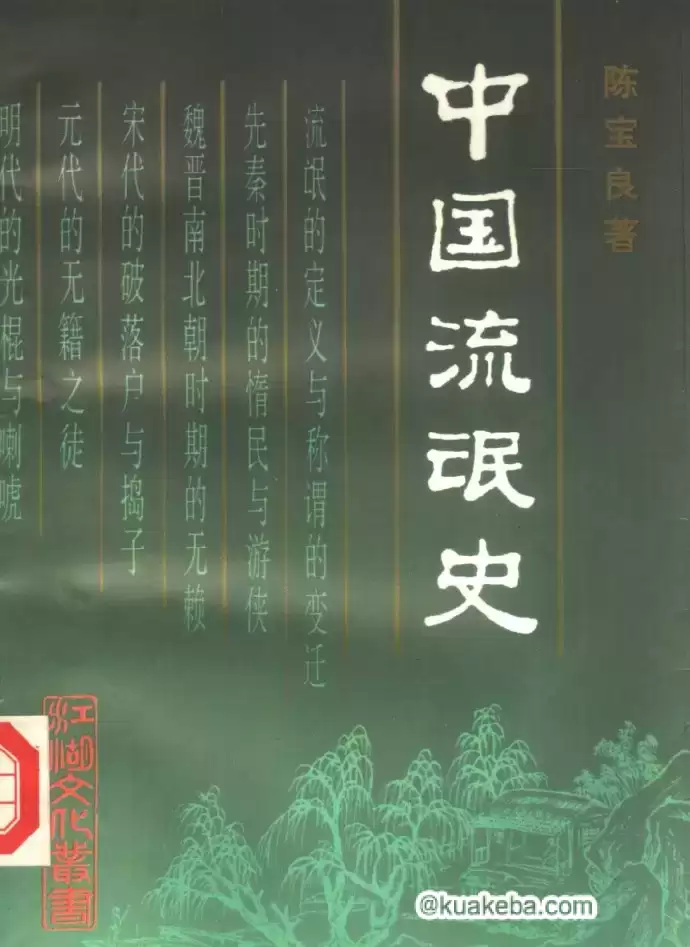 陈宝良著
中国流氓史
流氓的定义与称谓的变迁
先秦时期的惰民与游侠
魏晋南北朝时期的无赖
宋代的破落户与捣子
元代的无籍之徒
明代的光棍与喇唬
江湖文化叢書
@kuakeba.com